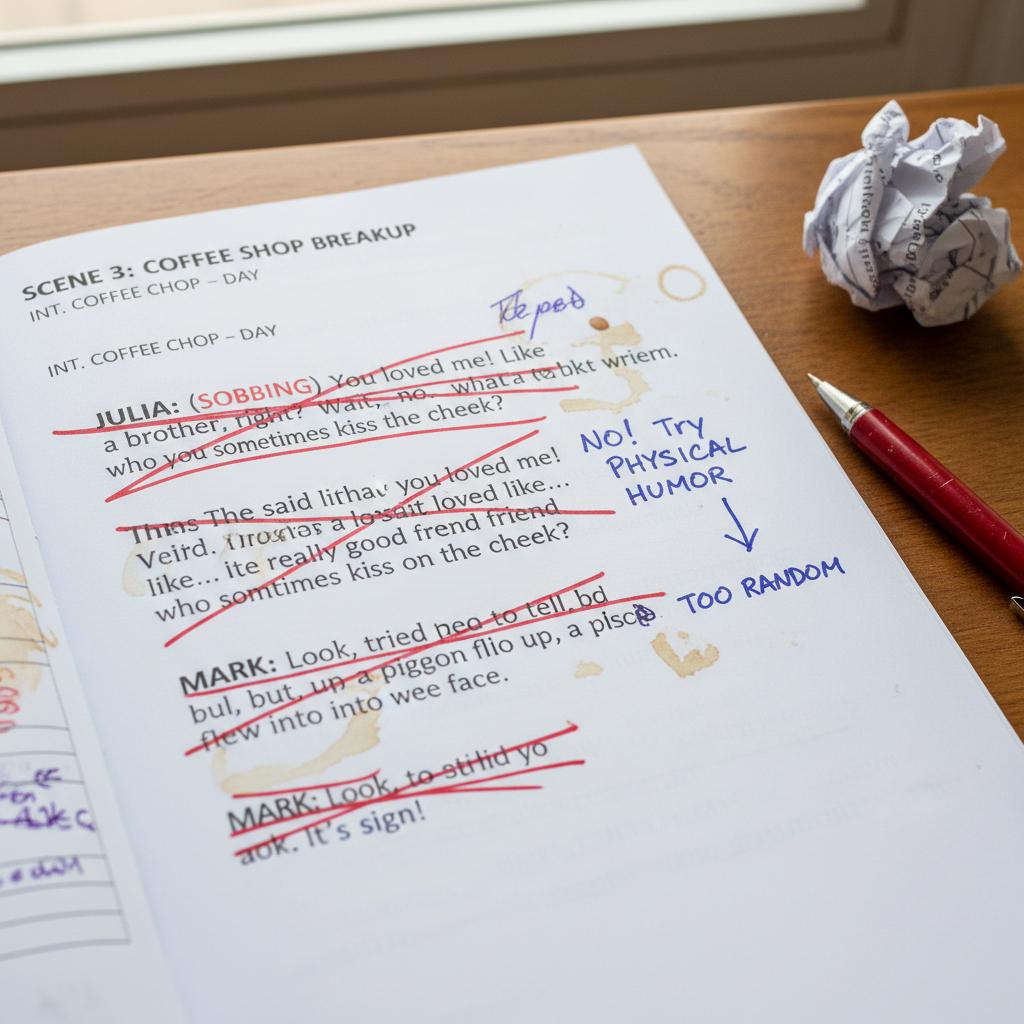 SCENE 3: COFFEE SHOP BREAKUP
INT. COFFEE CHOP – DAY
INT. COFFEE CHOP – DAY
JULIA: (SOBBING) You loved me! Like
a brother, right? Wait, no. what a bkt wriem.
who you sometimes kiss the cheek?
The said you loved me!
Veird. a loved like...
like... ite really good frend friend
who somtimes kiss on the cheek?
NO! Try
PHYSICAL
HUMOR
TOO RANDOM
MARK: Look, tried heo to tell, bd
bul, but, up a piggon flio up, a
flew into into wee face.
MARK: Look, to yo
aok. It's sign!